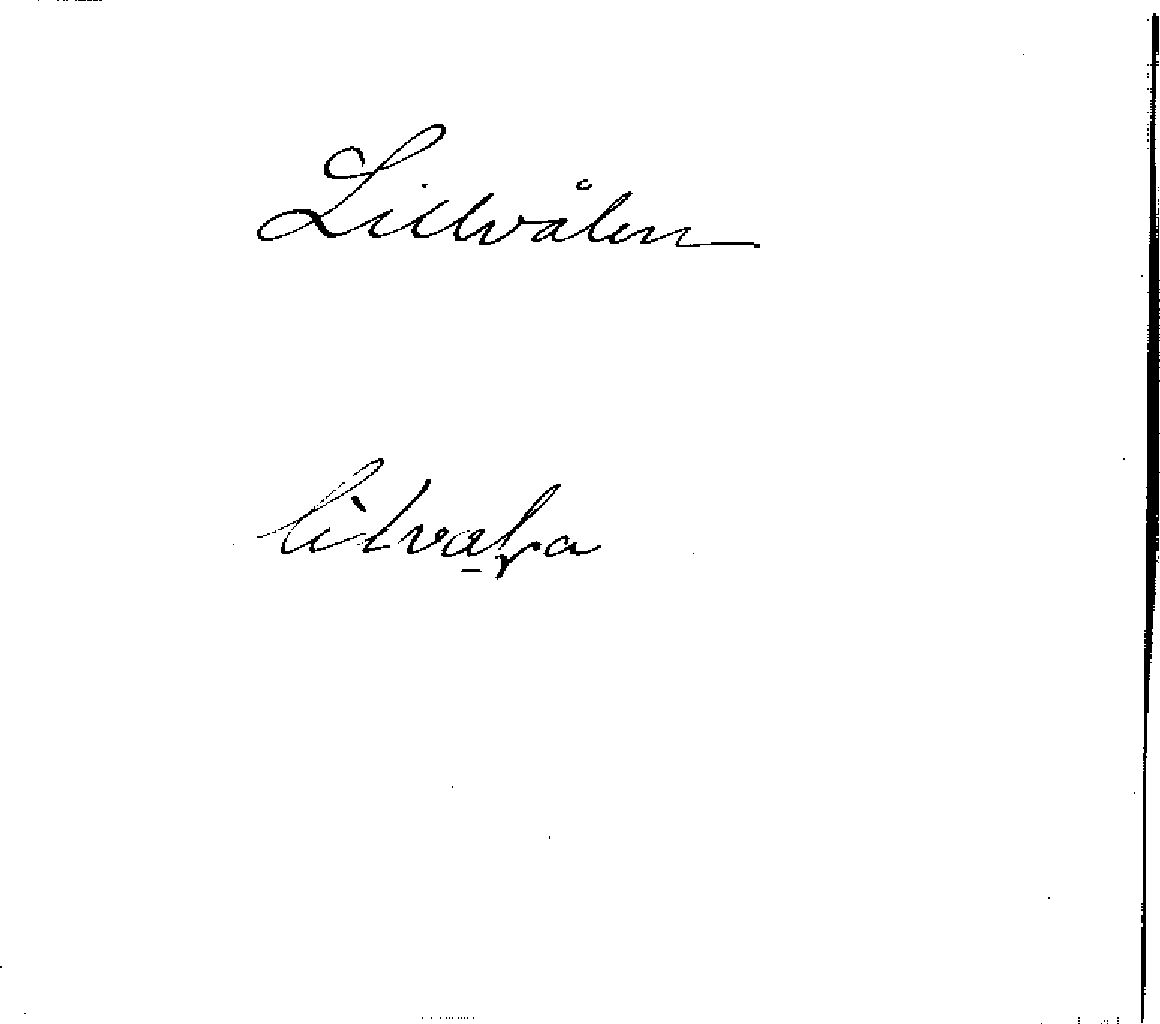 Lillvålen
lìlva̱ɭa